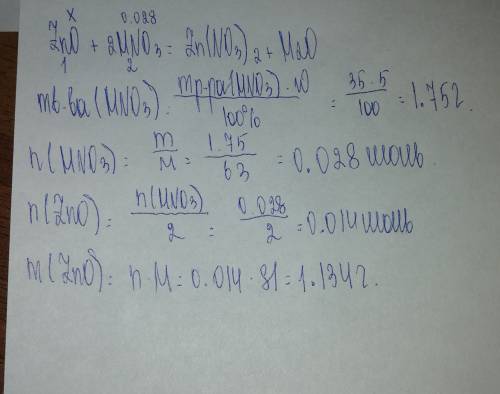 x 0.028
ZnO + 2HNO3 = Zn(NO3)2 + H2O
1 2
mв-ва(HNO3) = mр-ра(HNO3)·ω / 100% = 35·5 / 100 = 1.75г.
n(HNO3) = m / M = 1.75 / 63 = 0.028 моль
n(ZnO) = n(HNO3) / 2 = 0.028 / 2 = 0.014 моль
m(ZnO) = n·M = 0.014·81 = 1.134г.